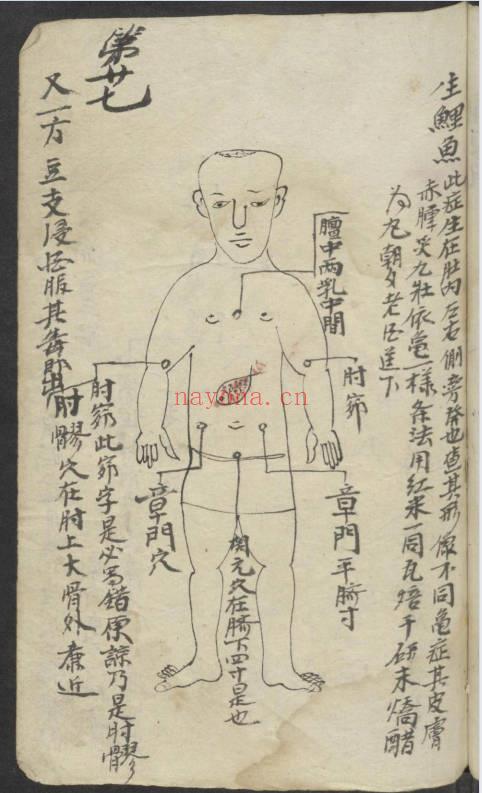 生鯉魚此症生在肚内左右側旁發也查其形像不同亀症其皮膚
赤腫灸九壯依亀一樣条法用紅米一同瓦焙干研末燒醋
为丸朝夕老酒送下
膻中两乳中間
肘窌
章門平臍寸
関元穴在臍下四寸是也
章門穴
肘窌此窌字是必写錯原諒乃是肘髎
肘髎穴在肘上大骨外廉近
又一方豆支浸酒服其毒即出
第廿七
nayona.cn